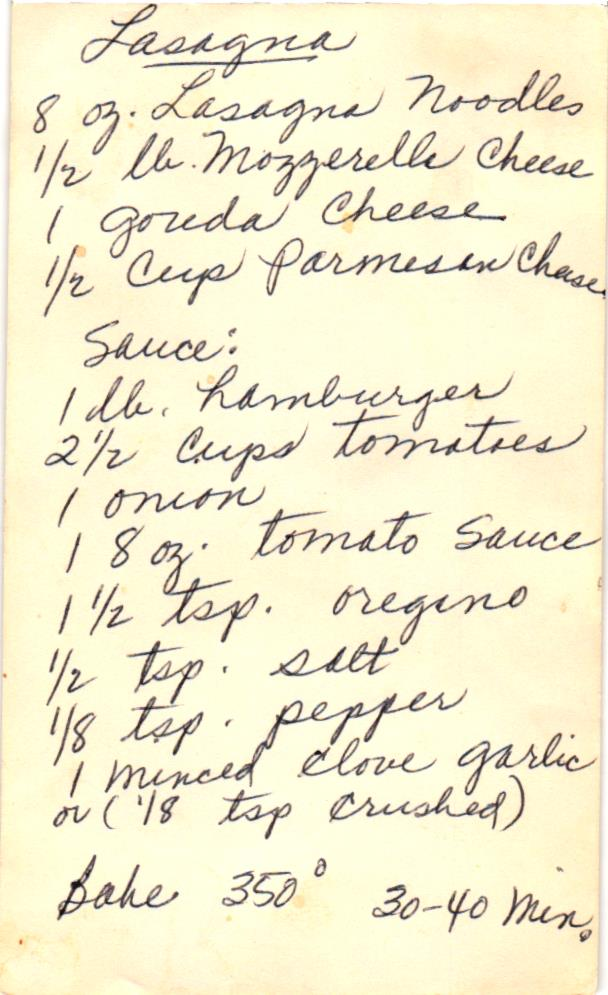 Lasagna
8 oz. Lasagna Noodles
1/2 lb. Mozzerella Cheese
1 gouda Cheese
1/2 Cup Parmesan Cheese
Sauce:
1 lb. hamburger
2 1/2 Cups tomatoes
1 onion
1 8 oz. tomato Sauce
1 1/2 tsp. oregino
1/2 tsp. salt
1/8 tsp. pepper
1 minced clove garlic
or (1/8 tsp crushed)
Bake 350° 30-40 Min.